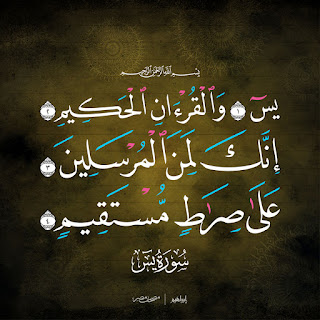 بسم الله الرحمن الرحيم
يسٓ ١ وَٱلْقُرْءَانِ ٱلْحَكِيمِ ٢
إِنَّكَ لَمِنَ ٱلْمُرْسَلِينَ ٣
عَلَىٰ صِرَٰطٍ مُّسْتَقِيمٍ ٤
سورة يس